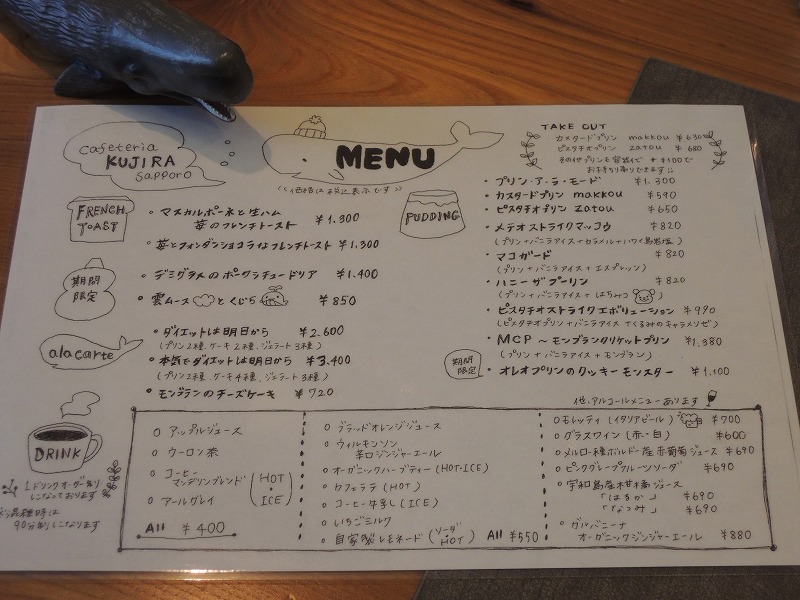 Cafeteria
KUJIRA
Sapporo
MENU
((価格は税込表示です))
TAKE OUT
カスタードプリン makkou ¥630
ピスタチオプリン zatou ¥680
その他プリンも容器代 +¥100で
お持ち帰りできます
FRENCH
TOAST
• マスカルポーネと生ハム
苺のフレンチトースト ¥1.300
• 苺とフォンダンショコラなフレンチトースト ¥1.300
期間
限定
• デミグラスのポークシチュードリア ¥1.400
• 雲ムースとくじら ¥850
a la carte
• ダイエットは明日から ¥2.600
(プリン2種、ケーキ2種、ジェラート3種)
• 本気でダイエットは明日から ¥3.400
(プリン2種、ケーキ4種、ジェラート3種)
• モンブランのチーズケーキ ¥720
PUDDING
• プリン・ア・ラ・モード ¥1.300
• カスタードプリン makkou ¥590
• ピスタチオプリン zatou ¥650
• メテオストライクマッコウ ¥820
(プリン+バニラアイス+カラメル+ハワイ島岩塩)
• マコガード ¥820
(プリン+バニラアイス+エスプレッソ)
• ハニーザプーリン ¥820
(プリン+バニラアイス+はちみつ)
• ピスタチオストライクエボリューション ¥990
(ピスタチオプリン+バニラアイス+くるみのキャラメリゼ)
• MCP ~ モンブランクリケットプリン ¥1,380
(プリン+バニラアイス+モンブラン)
期間
限定
• オレオプリンのクッキーモンスター ¥1,100
他、アルコールメニューあります
DRINK
1ドリンクオーダー制と
しなっております
混雑時は
90分制になります
○ アップルジュース
○ ウーロン茶
○ コーヒー
マンデリンブレンド (HOT・ICE)
○ アールグレイ
All ¥400
○ ブラッドオレンジジュース
○ ウィルキンソン
辛口ジンジャーエール
○ オーガニックハーブティー (HOT・ICE)
○ カフェラテ (HOT)
○ コーヒー牛乳 (ICE)
○ いちごミルク
○ 自家製レモネード (ソーダ・HOT) All ¥550
○ モレッティ (イタリアビール) ¥700
○ グラスワイン (赤・白) ¥600
○ メルロー種ボルドー産赤葡萄ジュース ¥690
○ ピンクグレープフルーツソーダ ¥690
○ 宇和島産柑橘ジュース
「はるか」 ¥690
「なつみ」 ¥690
○ ガルバニーナ
オーガニックジンジャーエール ¥880